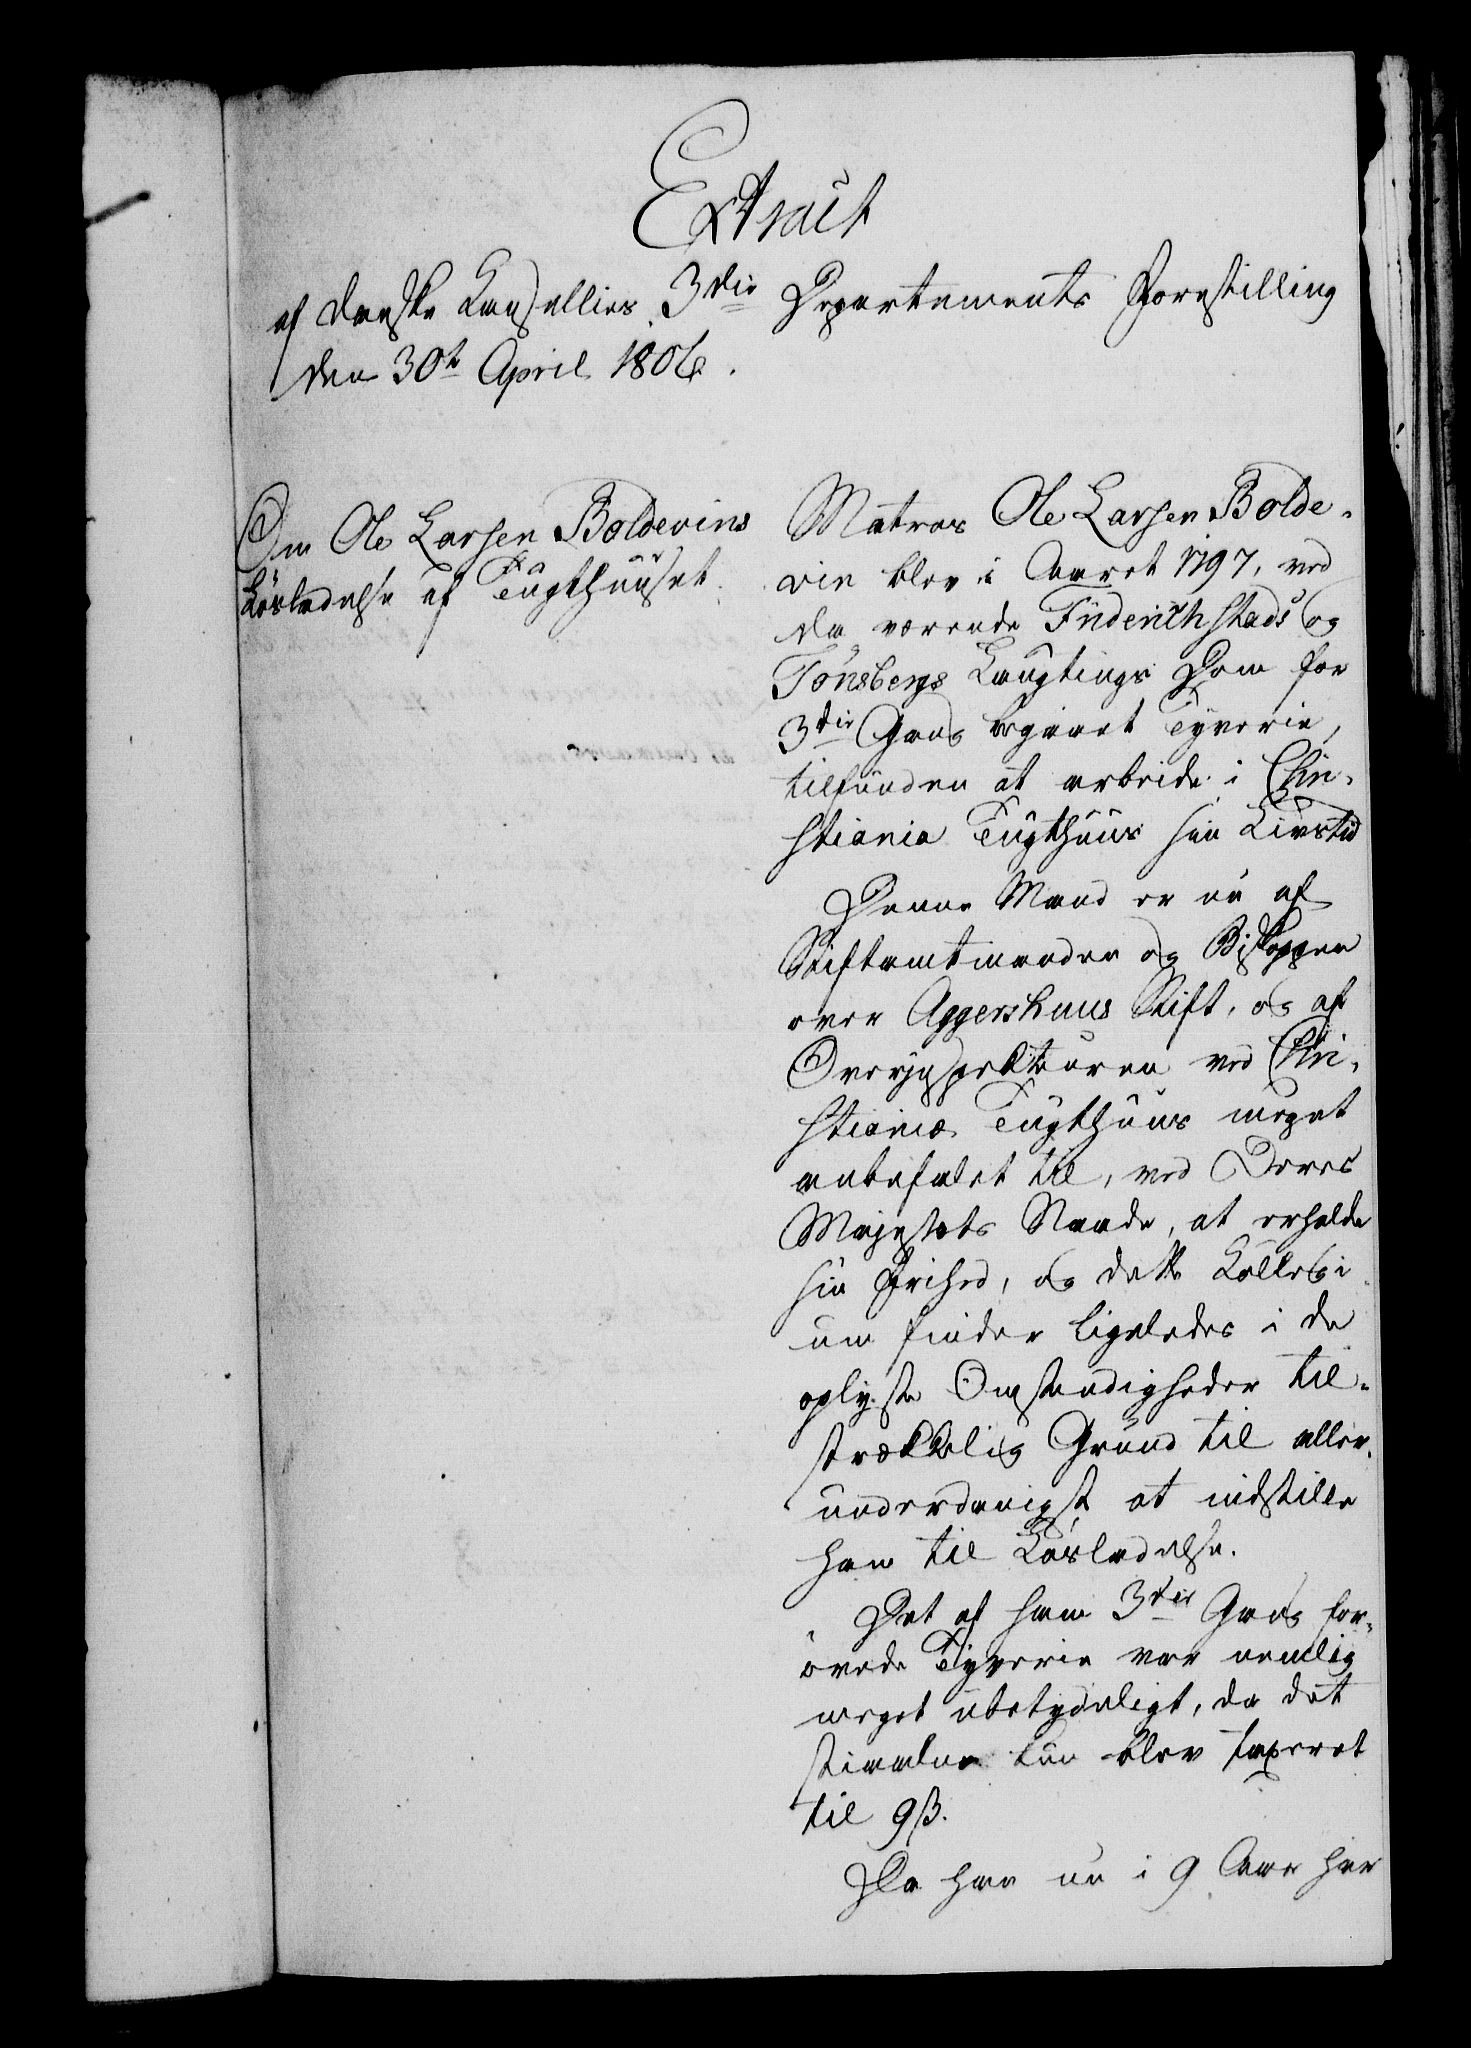 Extract
af danske Kansellies 3die Departements Forestilling
den 30te April 1806.
Om Ole Larsen Boldevins
Løsladelse af Tugthuuset.
Matros Ole Larsen Bolde-
vin blev i Aaret 1797, ved
da værende Friderichstads og
Tønsbergs Laugtings Dom for
3die Gang begaaet Tyverie,
tilfunden at arbeide i Chri-
stiania Tugthuus sin Livstid
Denne Mand er nu af
Stiftamtmanden og Biskoppen
over Aggershuus Stift, og af
Overinspekteuren ved Chri-
stianiæ Tugthuus meget
anbefalet til, ved Deres
Majestæts Naade, at erholde
sin Frihed, og dette Collegi-
um finder ligeledes i de
oplyste Omstændigheder til-
strækkelig Grund til aller-
underdanigst at indstille
ham til Løsladelse.
Det af ham 3die Gang for-
øvede Tyverie var nemlig
meget ubetydeligt, da det
stiaalne kun blev taxeret
til 9 ß.
Da han nu i 9 Aar har